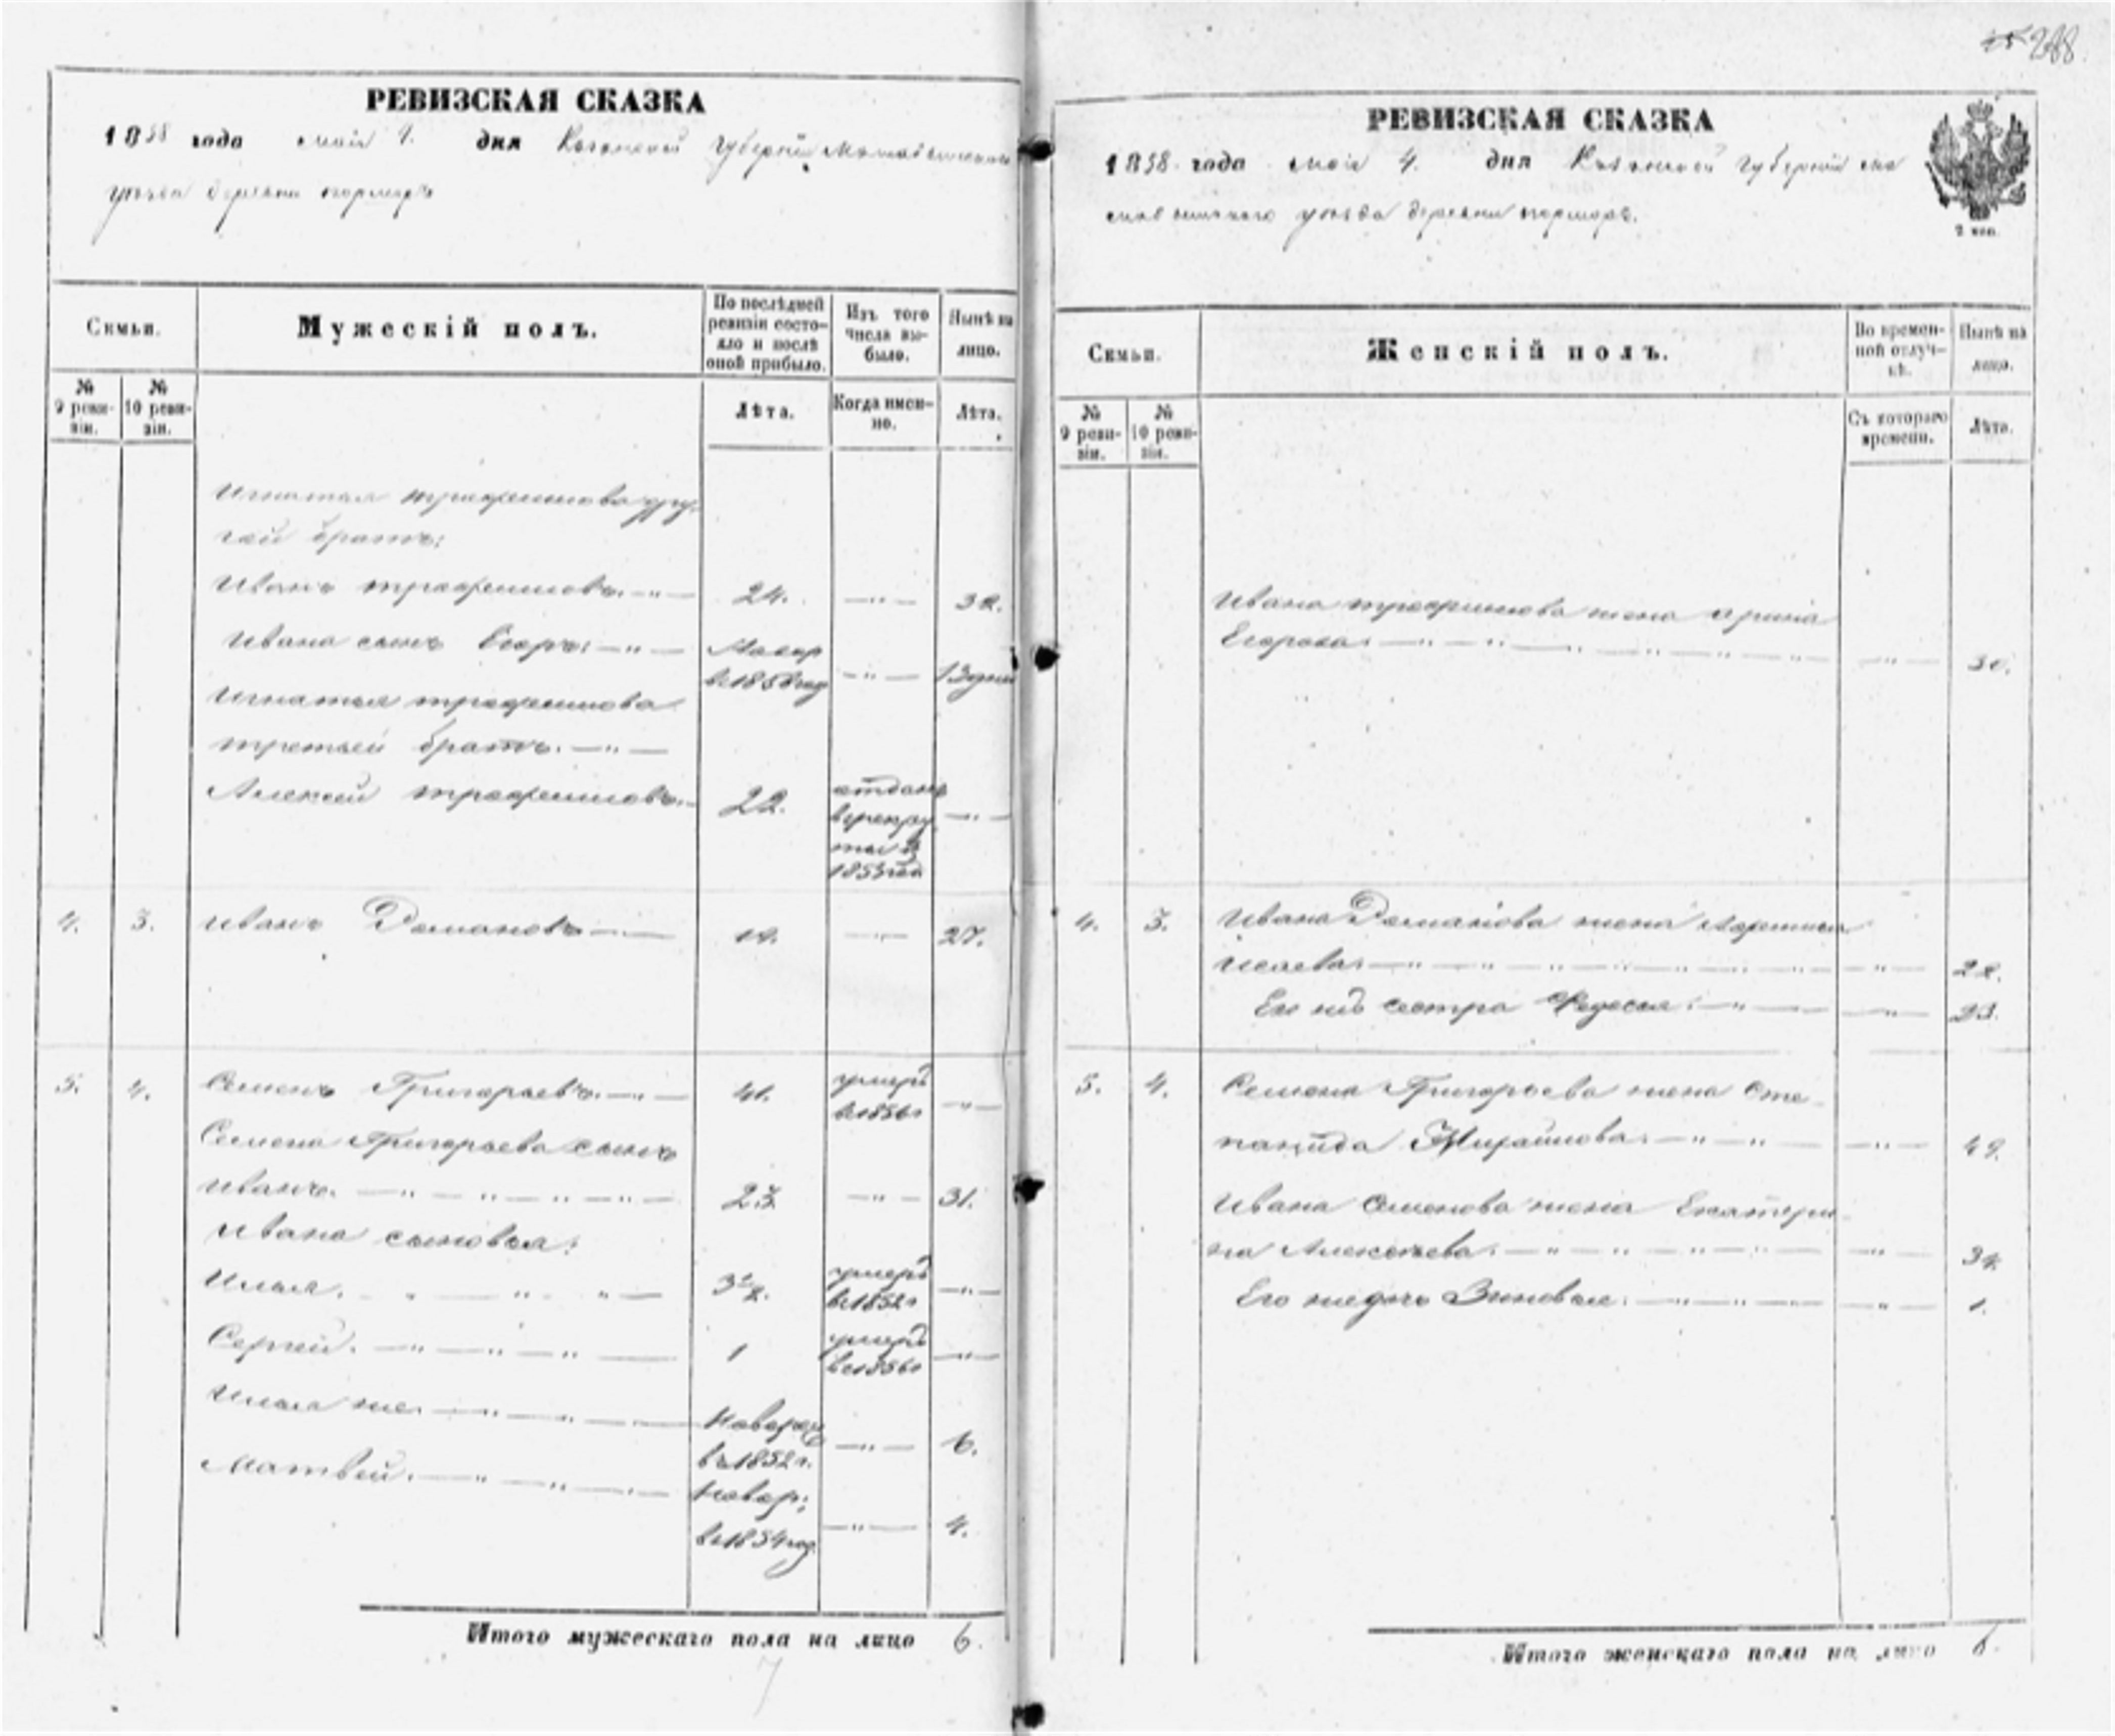 288
РЕВИЗСКАЯ СКАЗКА
1858 года мая 4. дня Казанской губернии
уезда деревни
Семьи.
Мужескій полъ.
По послѣдней ревизіи состо-
яло и послѣ оной прибыло.
Изъ того числа вы-
было.
Нынѣ на лицо.
№ 9 реви-
зіи.
№ 10 реви-
зіи.
Лѣта.
Когда имен-
но.
Лѣта.
Игнатья трофимова дру
гой братъ:
Иванъ трофимовъ. 24. 32.
Ивана сынъ Егоръ:
в 1858 год 13 дней
Игнатья трофимова
третьей братъ.
Алексей трофимовъ. 22. отданъ
в рекру
ты в
1853 год
4. 3. Иванъ Романовъ 19. 27.
5. 4. Семенъ Григорьевъ. 41. умеръ
в 1856 г
Семена Григорьева сынъ
Иванъ. 23 31.
Ивана сыновья:
Илья. 3½. умеръ
в 1852 г
Сергей. 1 умеръ
в 1856 г
Илья же. Новорож
в 1852 г. 6.
Матвей. Новор:
в 1854 год. 4.
Итого мужескаго пола на лицо 6.
7
РЕВИЗСКАЯ СКАЗКА
1858 года мая 4. дня Казанской губернии
уезда деревни
2 коп.
Семьи.
Женскій полъ.
Во времен-
ной отлуч-
кѣ.
Нынѣ на лицо.
№ 9 реви-
зіи.
№ 10 реви-
зіи.
Съ котораго времени.
Лѣта.
Ивана трофимова жена арина
Егорова 30.
4. 3. Ивана Романова жена
22.
Его же сестра Федосья: 23.
5. 4. Семена Григорьева жена Сте
панида 49.
Ивана Семенова жена Екатери
на Алексеева. 34.
Его же дочь Зиновья: 1.
Итого женскаго пола на лицо 6.